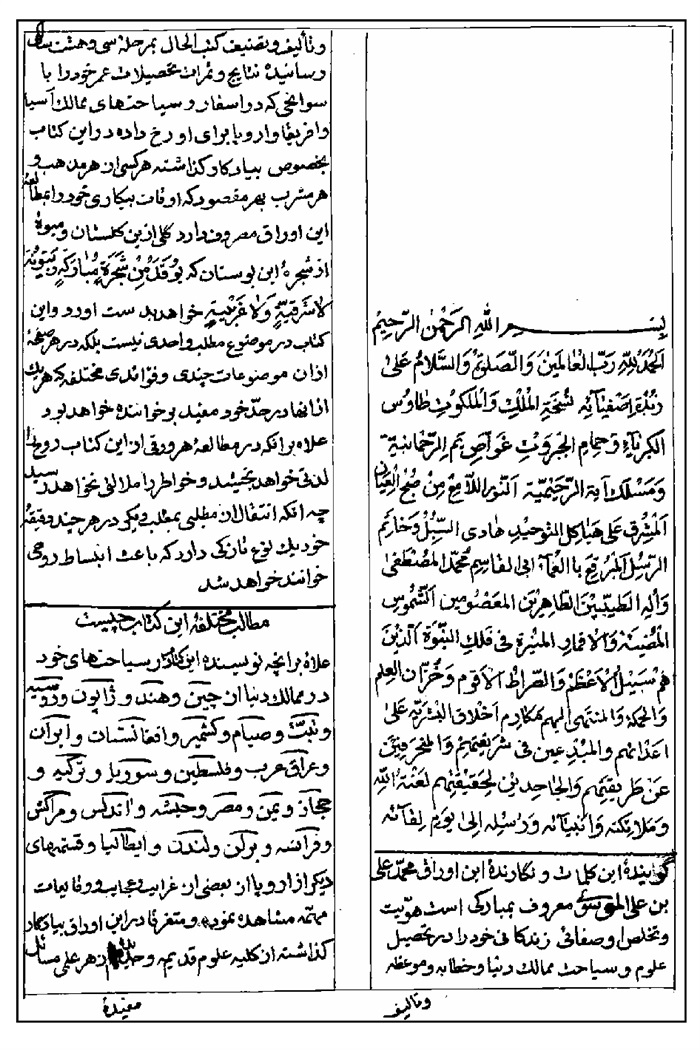 بِسْمِ اللهِ الرَّحْمٰنِ الرَّحِیمِ
اَلْحَمْدُ لِلّٰهِ رَبِّ الْعَالَمِینَ وَالصَّلٰوةُ وَالسَّلَامُ عَلیٰ
زُبْدَةِ اَصْفِیَائِهِ نُسْخَةِ الْمُلْكِ وَالْمَلَكُوتِ طاوُسِ
الْكِبْرِیَاءِ وَحَمَامِ الْجَبَرُوتِ غَوّاصِ یَمِّ الرَّحْمَانِیَّةِ
وَمَسْلَكِ آیَةِ الرَّحِیمِیَّةِ اَلنُّورِ اللّامِعِ مِنْ صُبْحِ الْعِیَانِ
اَلْمُشْرِقِ عَلیٰ هَیَاكِلِ التَّوْحِیدِ هادی السُّبُلِ وَخاتَمِ
الرُّسُلِ الْمُبَرْقَعِ بِالْعَمَاءِ ابی القاسِمِ مُحَمَّدٍ الْمُصْطَفیٰ
وَآلِهِ الطَّیِّبِینَ الطَّاهِرِینَ الْمَعْصُومِینَ اَلشُّمُوسِ
الْمُضِیئَةِ وَالْاَقْمارِ الْمُنِیرَةِ فی فَلَكِ النُّبُوَّةِ اَلَّذِینَ
هُمْ سَبِیلُ الْاَعْظَمِ وَالصِّراطُ الْاَقْوَمِ وَخُزّانُ الْعِلْمِ
وَالْحِكْمَةِ وَالْمُنْتَهیٰ الیهِمْ مَكارِمُ اَخْلاقِ الْبَشَرِیَّةِ عَلیٰ
اَعْدَائِهِمْ وَالْمُبْدِعِینَ فی شَرِیعَتِهِمْ وَالْمُنْحَرِفِینَ
عَنْ طَرِیقَتِهِمْ وَالْجَاحِدِینَ لِحَقِیقَتِهِمْ لَعْنَةُ اللهِ
وَمَلائِكَتِهِ وَاَنْبِیَائِهِ وَرُسُلِهِ اِلیٰ یَوْمِ لِقَائِهِ
گویندهٔ این کلمات و نگارندهٔ این اوراق محمّد علی
بن علی معروف بمبارکی است هویّت
وتخلص وصفاتی زندگانی خود را در تحصیل
علوم و سیاحت ممالك دنیا وخطابه وموعظه
وتالیف
وتألیف وتصنیف کتب الحال بمرحلهٔ سی وهشت سال
رسانیده نتایج و ثمرات تحصیلات عمر خود را با
سوانحی که در اسفار و سیاحتهای ممالك آسیا
وافریقا واروپا برای او رخ داده در این کتاب
بخصوص بیادکار کذاشته هر کسی از هر مذهب و
هر مشرب بهر مقصود که اوقات بیکاری خود را بمطالعه
این اوراق مصروف دارد کلی از این کلستان و میوهٔ
از شجرهٔ این بوستان که یُوقَدُ مِنْ شَجَرَةٍ مُبَارَكَةٍ زَیْتُونَةٍ
لَا شَرْقِیَّةٍ وَلَا غَرْبِیَّةٍ خواهد بدست اورد و این
کتاب در موضوع مطلب واحدی نیست بلکه در هر صفحهٔ
از ان موضوعات چندی و فوائدی مختلفه که هر یك
از انها در حدّ خود مفید بر خواننده خواهد بود
علاوه بر انکه در مطالعهٔ هر ورقی از این کتاب روح را
لذتی خواهد بخشید و خواطر را ملالتی نخواهد رسید
چه انکه انتقال از مطلبی بمطلب دیکر در هر چند دقیقه
خود یك نوع تازکی دارد که باعث انبساط روحی
خواننده خواهد شد
مطالب مختلفه این کتاب چیست
علاوه بر انچه نویسنده این کتاب از سیاحتهای خود
در ممالك دنیا از چین و هند و ژاپون و روسیه
و تبّت و صیام و کشمیر و افغانستان و ایران
و عراق عرب و فلسطین و سوریا و ترکیه و
حجاز و یمن و مصر و حبشه و اندلس و مراکش
و فرانسه و برلن و لندن و ایطالیا و قسمتهای
دیکر از اروپا از بعضی از غرایب و عجایب و وقایعات
مهمّه مشاهده نموده و متفرقا در این اوراق بیادکار
کذاشته از کلیه علوم قدیمه و از هر علمی مسائل
مفیدهٔ